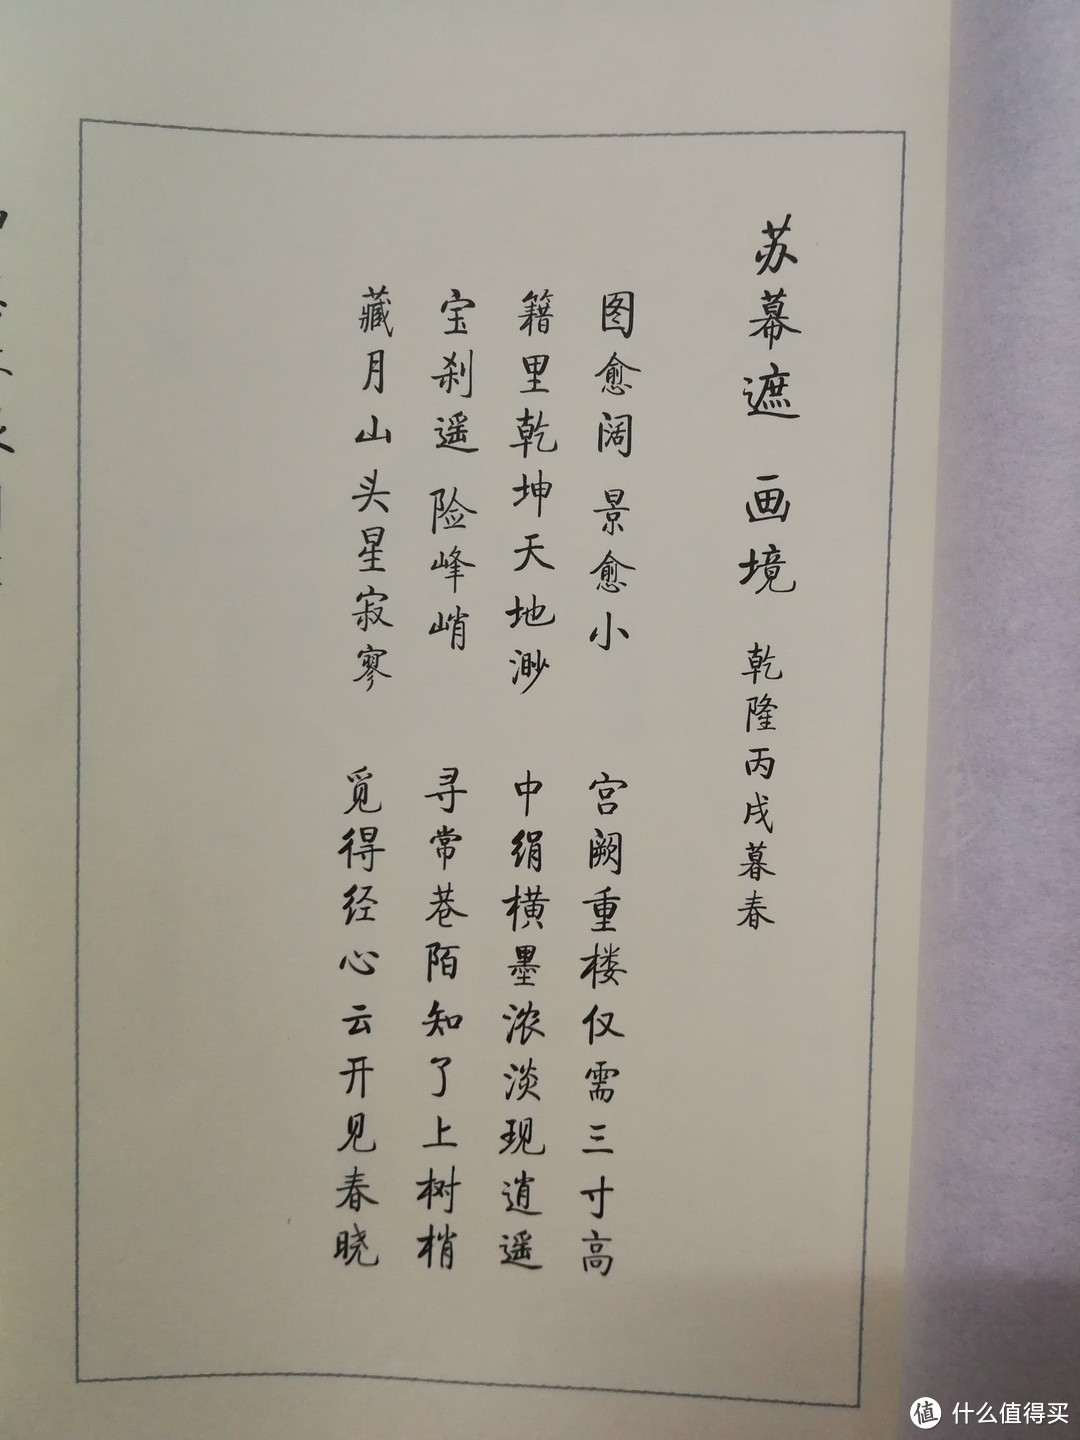 苏幕遮 画境 乾隆丙戌暮春
图愈阔 景愈小 宫阙重楼仅需三寸高
籍里乾坤天地渺 中绢横墨浓淡现逍遥
宝刹遥 险峰峭 寻常巷陌知了上树梢
藏月山头星寂寥 觅得经心云开见春晓
值 什么值得买